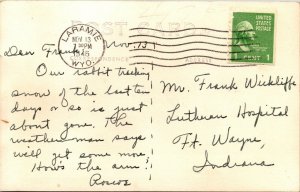 POST CARD
LARAMIE
NOV 13
PM
1946
WYO.
UNITED STATES
1 CENT 1
Dear Frank, Nov. 13
Our rabbit tracking
snow of the last ten
days or so is just
about gone. The
weatherman says
we'll get some more.
How's the arm?
Roscoe
Mr. Frank Wickliffe
Lutheran Hospital
Ft. Wayne,
Indiana